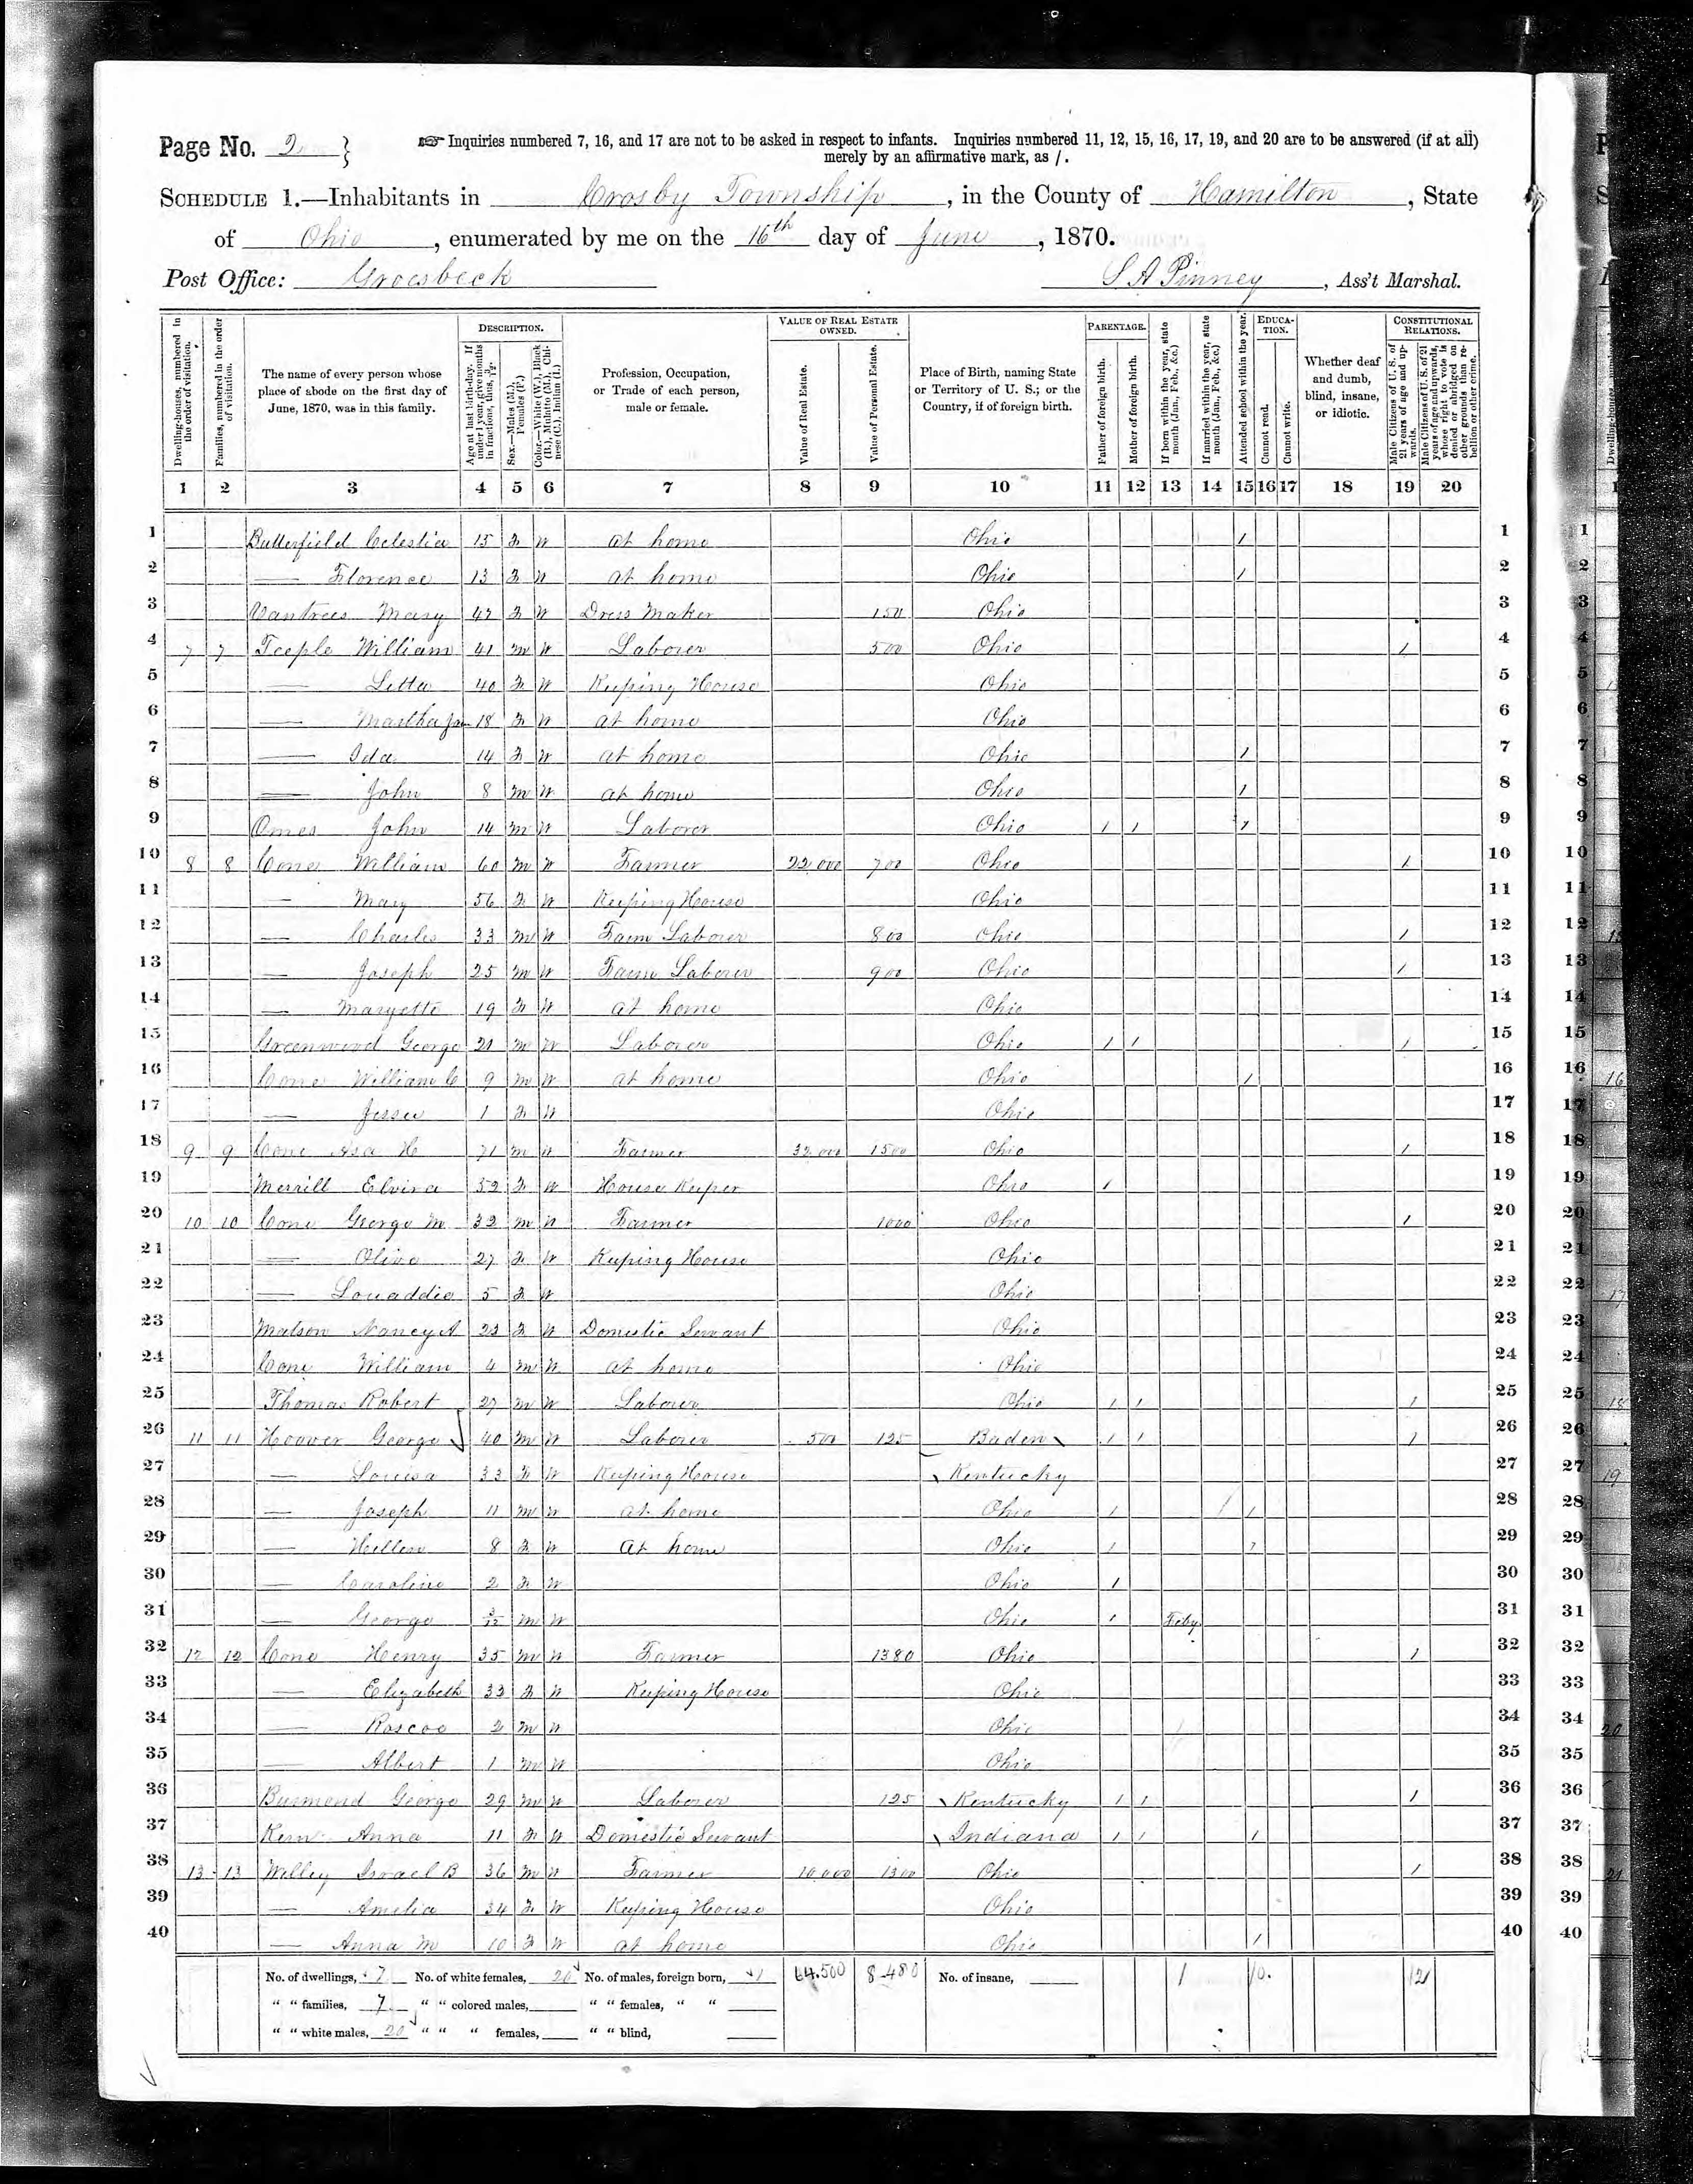 Page No. 2
☞ Inquiries numbered 7, 16, and 17 are not to be asked in respect to infants. Inquiries numbered 11, 12, 15, 16, 17, 19, and 20 are to be answered (if at all)
merely by an affirmative mark, as /.
SCHEDULE 1.—Inhabitants in Crosby Township, in the County of Hamilton, State
of Ohio, enumerated by me on the 16th day of June, 1870.
Post Office: Groesbeck S A Pinney, Ass't Marshal.
Dwelling-houses, numbered in the order of visitation.
Families, numbered in the order of visitation.
The name of every person whose place of abode on the first day of June, 1870, was in this family.
DESCRIPTION.
Age at last birth-day. If under 1 year, give months in fractions, thus, 3/12.
Sex.—Males (M.), Females (F.)
Color.—White (W.), Black (B.), Mulatto (M.), Chinese (C.), Indian (I.)
Profession, Occupation, or Trade of each person, male or female.
VALUE OF REAL ESTATE OWNED.
Value of Real Estate.
Value of Personal Estate.
Place of Birth, naming State or Territory of U. S.; or the Country, if of foreign birth.
PARENTAGE.
Father of foreign birth.
Mother of foreign birth.
If born within the year, state month (Jan., Feb., &c.)
If married within the year, state month (Jan., Feb., &c.)
Attended school within the year.
EDUCATION.
Cannot read.
Cannot write.
Whether deaf and dumb, blind, insane, or idiotic.
CONSTITUTIONAL RELATIONS.
Male Citizens of U. S. of 21 years of age and upwards.
Male Citizens of U. S. of 21 years of age and upwards, whose right to vote is denied or abridged on other grounds than rebellion or other crime.
1 2 3 4 5 6 7 8 9 10 11 12 13 14 15 16 17 18 19 20
1 Butterfield Celestia 15 F W at home Ohio / 1
2 — Florence 13 F W at home Ohio / 2
3 Vantrees Mary 42 F W Dress Maker 150 Ohio 3
4 7 7 Teeple William 41 M W Laborer 500 Ohio / 4
5 — Letta 40 F W Keeping House Ohio 5
6 — Martha Jan 18 F W at home Ohio 6
7 — Ida 14 F W at home Ohio / 7
8 — John 8 M W at home Ohio / 8
9 Omes John 14 M W Laborer Ohio / / / 9
10 8 8 Cone William 60 M W Farmer 22000 700 Ohio / 10
11 — Mary 56 F W Keeping House Ohio 11
12 — Charles 33 M W Farm Laborer 800 Ohio / 12
13 — Joseph 25 M W Farm Laborer 900 Ohio / 13
14 — Maryette 19 F W at home Ohio 14
15 Greenwood George 21 M W Laborer Ohio / / / 15
16 Cone William C 9 M W at home Ohio / 16
17 — Jessee 1 F W Ohio 17
18 9 9 Cone Asa H 71 M W Farmer 32000 1500 Ohio / 18
19 Merrill Elvira 52 F W House Keeper Ohio / 19
20 10 10 Cone George M 32 M W Farmer 1000 Ohio / 20
21 — Olive 27 F W Keeping House Ohio 21
22 — Louaddie 5 F W Ohio 22
23 Matson Nancy A 23 F W Domestic Servant Ohio 23
24 Cone William 4 M W at home Ohio 24
25 Thomas Robert 27 M W Laborer Ohio / / / 25
26 11 11 Hoover George 40 M W Laborer 500 125 Baden / / / 26
27 — Louisa 33 F W Keeping House Kentucky 27
28 — Joseph 11 M W at home Ohio / / / 28
29 — Hellen 8 F W at home Ohio / / 29
30 — Caroline 2 F W Ohio / 30
31 — George 3/12 M W Ohio / Feby 31
32 12 12 Cone Henry 35 M W Farmer 1380 Ohio / 32
33 — Elizabeth 33 F W Keeping House Ohio 33
34 — Roscoe 2 M W Ohio 34
35 — Albert 1 M W Ohio 35
36 Burmond George 29 M W Laborer 125 Kentucky / / / 36
37 Kern Anna 11 F W Domestic Servant Indiana / / / 37
38 13 13 Willey Israel B 36 M W Farmer 10,000 1300 Ohio / 38
39 — Amelia 34 F W Keeping House Ohio 39
40 — Anna M 10 F W at home Ohio / 40
No. of dwellings, 7 No. of white females, 20 No. of males, foreign born, 1 64.500 8.480 No. of insane, 1 10. 12
" " families, 7 " " colored males, " " females, " "
" " white males, 20 " " " females, " " blind,